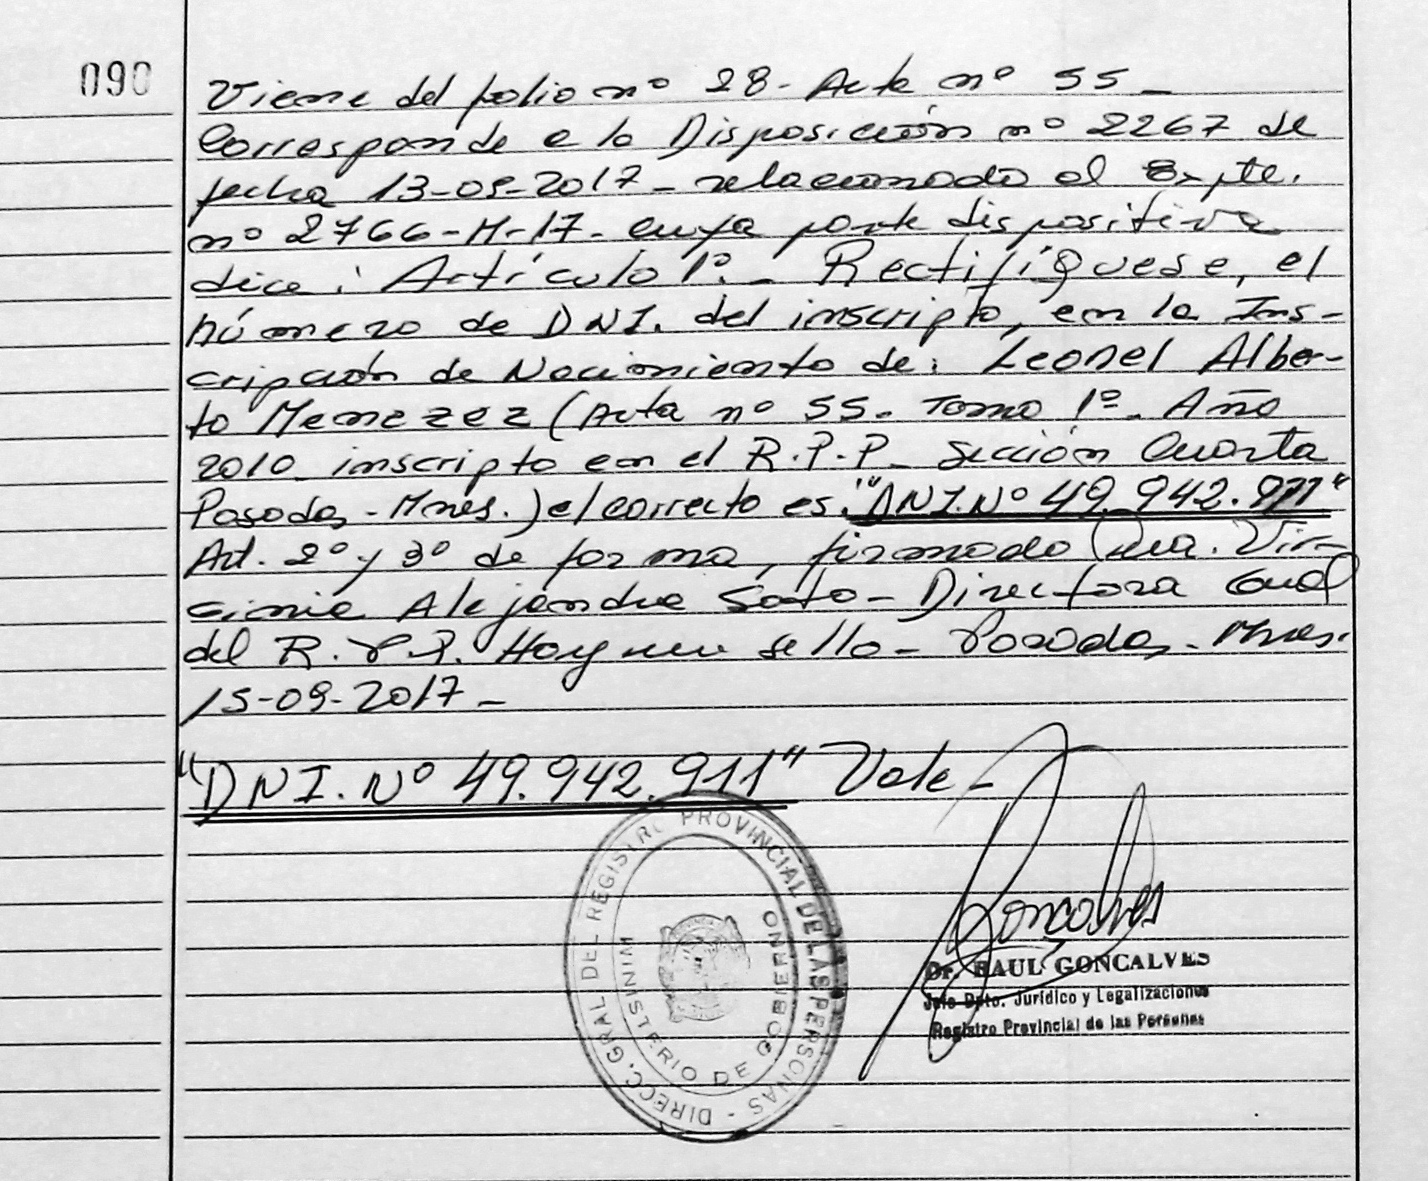 090
Viene del folio nº 28 - Acta nº 55 -
Corresponde a la Disposición nº 2267 de
fecha 13-09-2017 - relacionado al Expte.
nº 2766-M-17 - cuya parte dispositiva
dice: Artículo 1º. - Rectifíquese, el
número de DNI. del inscripto, en la Ins-
cripción de Nacimiento de: Leonel Alber-
to Menezez (Acta nº 55. Tomo 1º. Año
2010 inscripto en el R.P.P. Sección Cuarta
Posadas - Mnes.) el correcto es: "DNI. Nº 49.942.911"
Art. 2º y 3º de forma, firmado Dra. Vir-
ginia Alejandra Soto - Directora Gral
del R.P.P. Hay un sello - Posadas - Mnes.
15-09-2017 -
"DNI. Nº 49.942.911" Vale -
DIRECC. GRAL DEL REGISTRO PROVINCIAL DE LAS PERSONAS -
MINISTERIO DE GOBIERNO
Goncalves
Dr. RAUL GONCALVES
Jefe Dpto. Jurídico y Legalizaciones
Registro Provincial de las Personas